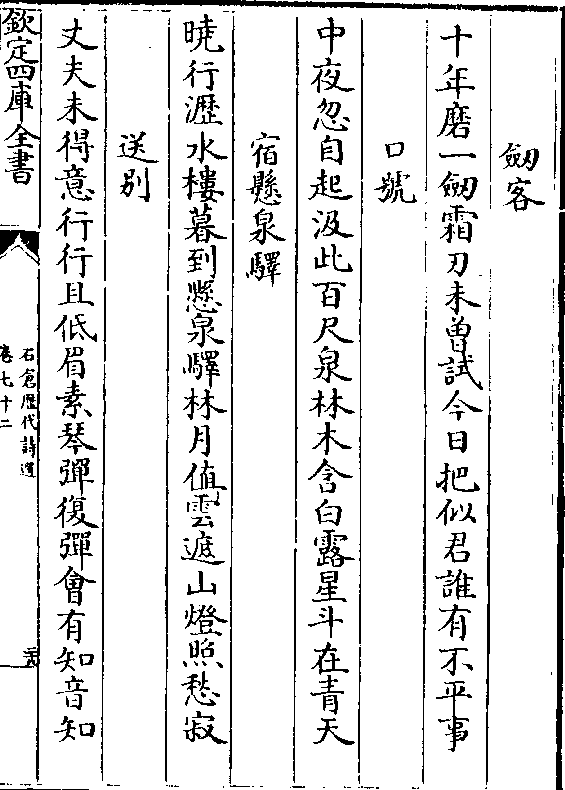 劒客
十年磨一劒霜刃未曾試今日把似君誰有不平事
口號
中夜忽自起汲此百尺泉林木含白露星斗在青天
宿懸泉驛
曉行瀝水樓暮到懸泉驛林月值雲遮山燈照愁寂
送别
丈夫未得意行行且低眉素琴彈復彈會有知音知
欽定四庫全書
石倉歷代詩選
卷七十二